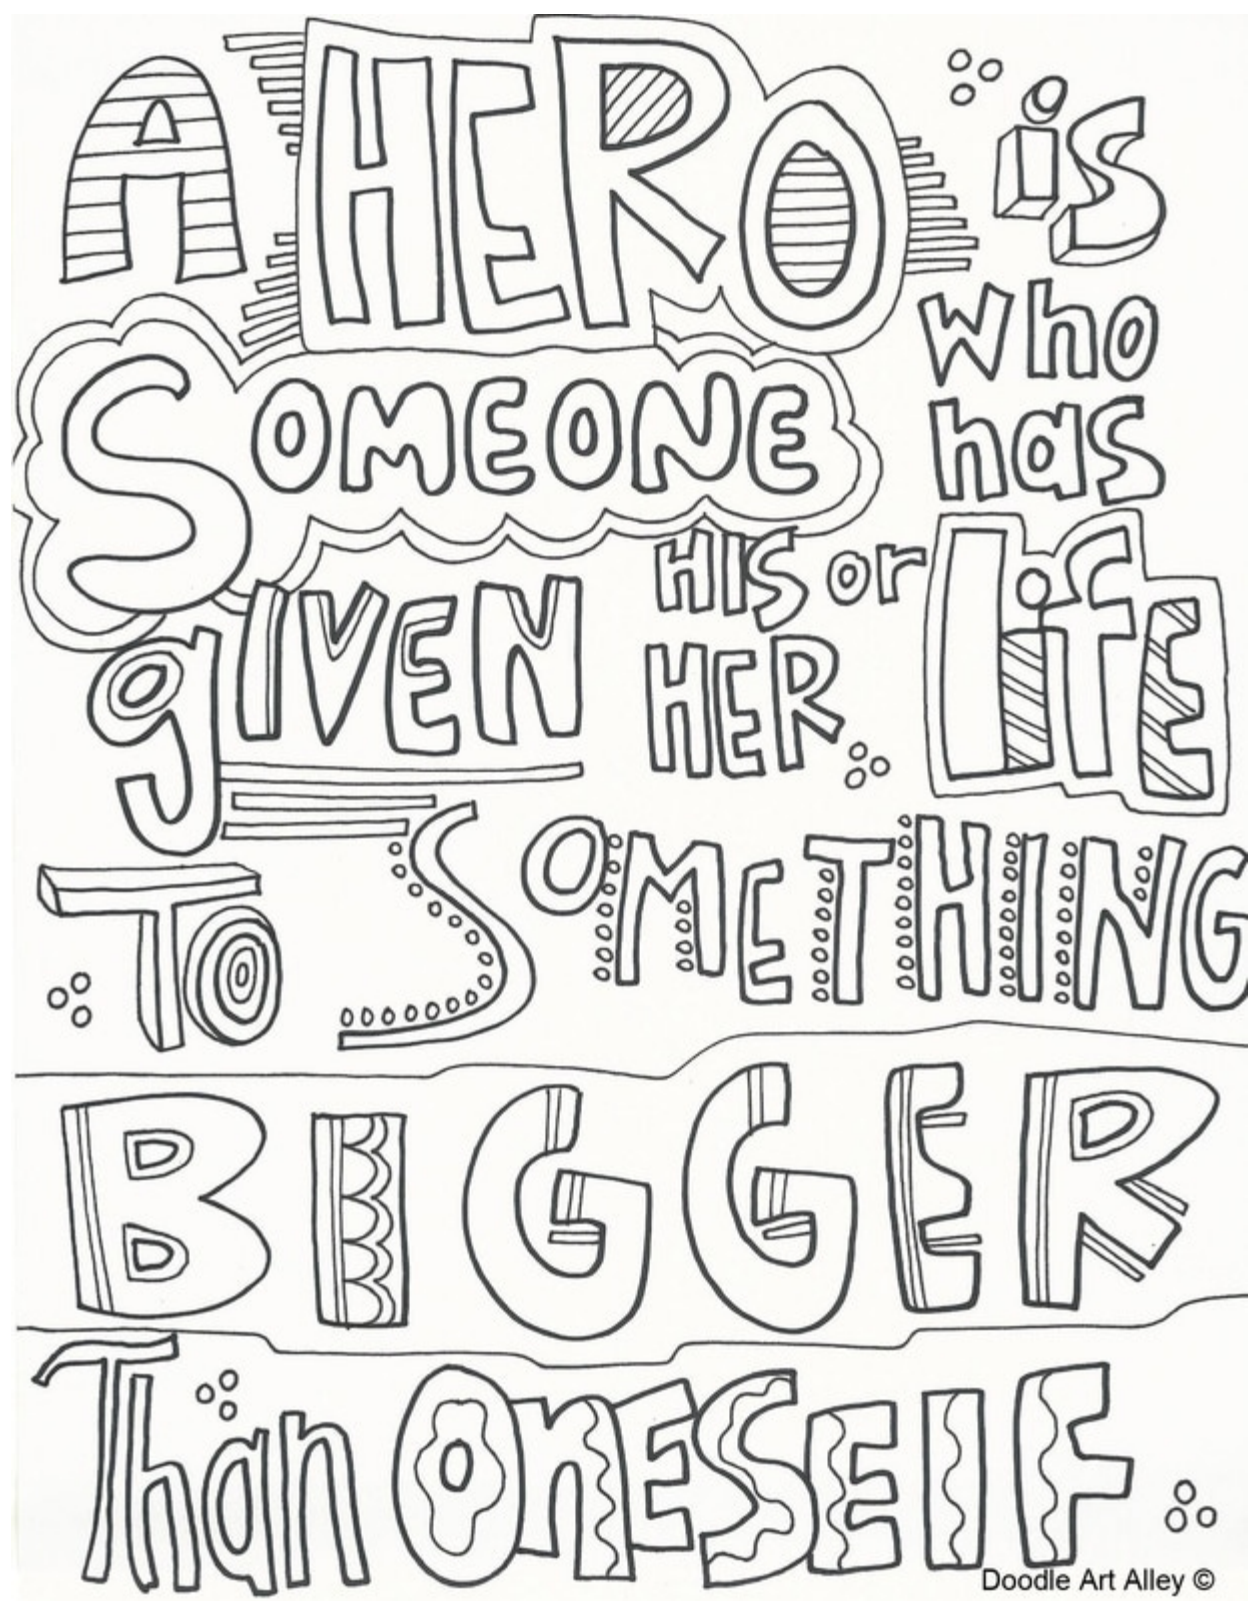 A HERO is
SOMEONE who
has
gIVEN HIS or
HER LifE
TO SOMETHING
BIGGER
Than OnESElF.
Doodle Art Alley ©